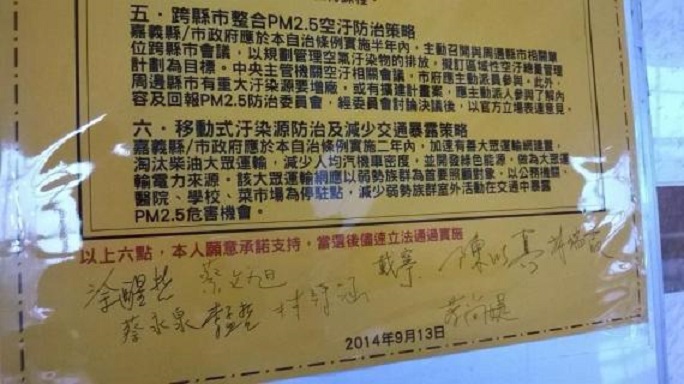 五、跨縣市整合PM2.5空汙防治策略
嘉義縣/市政府應於本自治條例實施半年內，主動召開與周邊縣市相關單
位跨縣市會議，以規劃管理空氣汙染物的排放，擬訂區域性空汙總量管理
計劃為目標。中央主管機關空汙相關會議，市府應主動派員參與。此外，
周邊縣市有重大汙染源要增廠，或有擴建計畫案，應主動派人參與了解內
容及回報PM2.5防治委員會，經委員會討論決議後，以官方立場表達意見。
六、移動式汙染源防治及減少交通暴露策略
嘉義縣/市政府應於本自治條例實施二年內，加速有善大眾運輸網建置，
淘汰柴油大眾運輸，減少人均汽機車密度，並開發綠色能源，做為大眾運
輸電力來源。該大眾運輸網應以弱勢族群為首要照顧對象，以公務機關、
醫院、學校、菜市場為停駐點，減少弱勢族群室外活動在交通中暴露
PM2.5危害機會。
以上六點，本人願意承諾支持，當選後儘速立法通過實施
蔡文旭 戴寧
蔡永泉
2014年9月13日